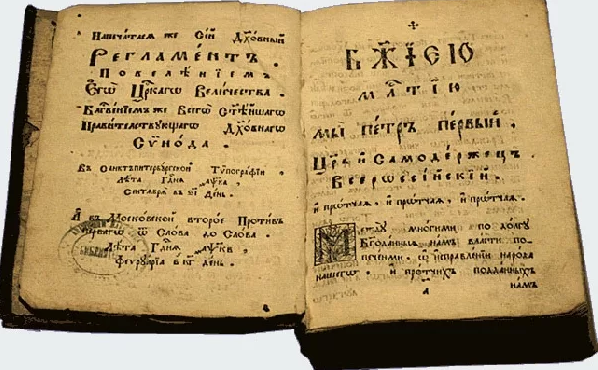 Напечатася же Сїй Дх҃овный
Регламентъ.
Повелѣнїемъ
Єгѡ Цр҃кагѡ Величества.
Блг҃венїемъ же Всегѡ Ст҃ѣйшагѡ
Правителствующагѡ Дх҃овнагѡ
Сѵнода.
Въ Санктъпитербургской Типографїи
лѣта Гдⷭ҇ня ҂аѱка
Септемврїа въ день.
А въ Московской второе Противъ
перваго ѿ Слова до Слова.
Лѣта Гдⷭ҇ня ҂аѱкв
Феуруарїа в день.
Бж҃їею
млⷭ҇тїю
мы пе́тръ пе́рвый.
Цр҃ь и Самоде́ржецъ
Всеросси́йскїй.
и про́тчая. и про́тчая. и про́тчая.
Между многими по долгу
Бг҃оданныя намъ власти по-
печеньми. ѡ исправленїи народа
нашегѡ. и протчихъ подданныхъ
намъ
а҃